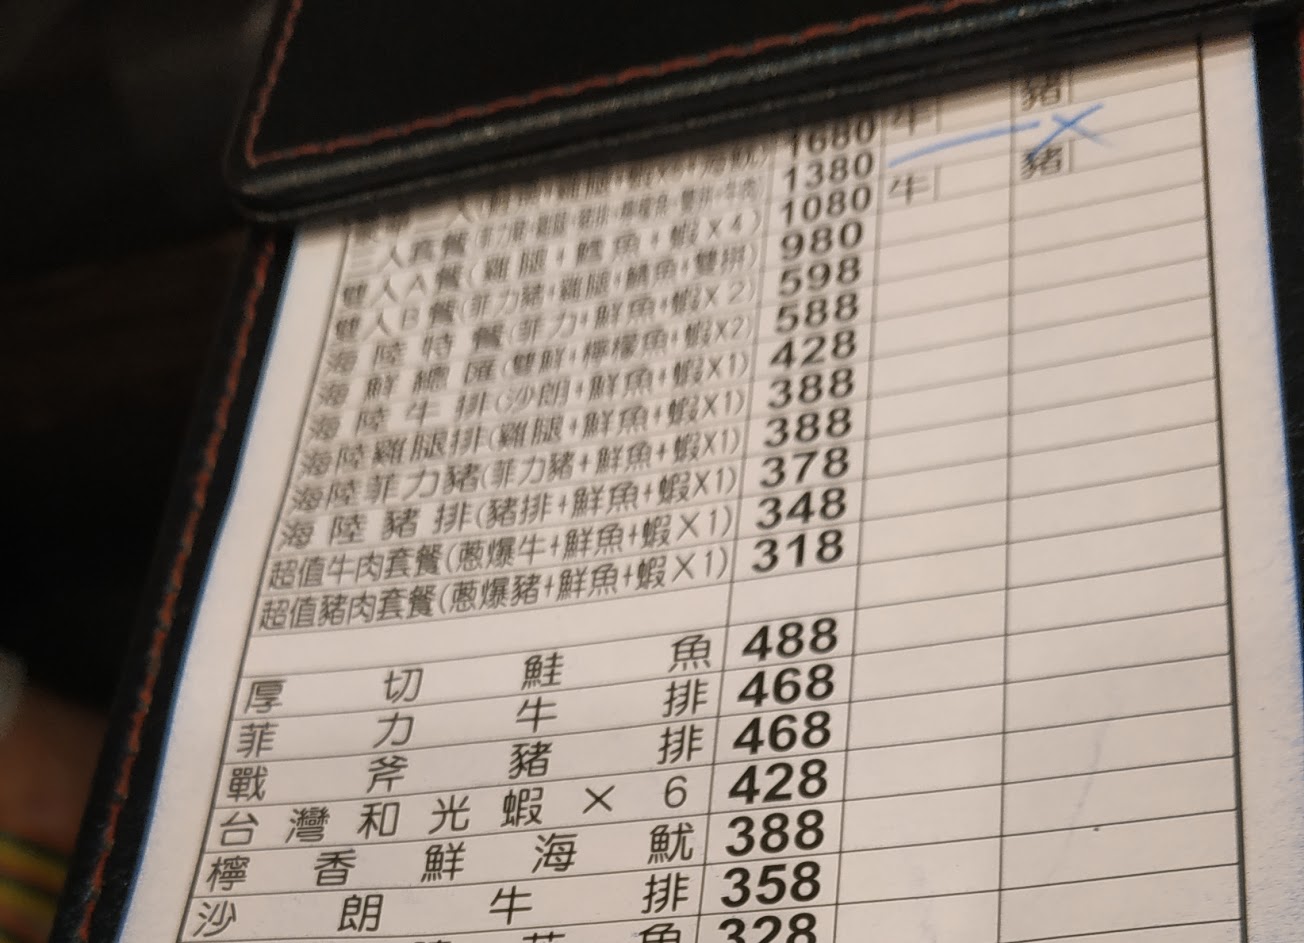 豬
+雞腿+蝦X6+海魷) 1680 牛
人套餐( 1380
雙人A餐(雞腿+鱈魚+蝦X4) 1080 牛 豬
雙人B餐(菲力豬+雞腿+鯖魚+雙拼) 980
海陸特餐(菲力+鮮魚+蝦X2) 598
海鮮總匯(雙鮮+檸檬魚+蝦X2) 588
海陸牛排(沙朗+鮮魚+蝦X1) 428
海陸雞腿排(雞腿+鮮魚+蝦X1) 388
海陸菲力豬(菲力豬+鮮魚+蝦X1) 388
海陸豬排(豬排+鮮魚+蝦X1) 378
超值牛肉套餐(蔥爆牛+鮮魚+蝦X1) 348
超值豬肉套餐(蔥爆豬+鮮魚+蝦X1) 318
厚切鮭魚 488
菲力牛排 468
戰斧豬排 468
台灣和光蝦×6 428
檸香鮮海魷 388
沙朗牛排 358
魚 328